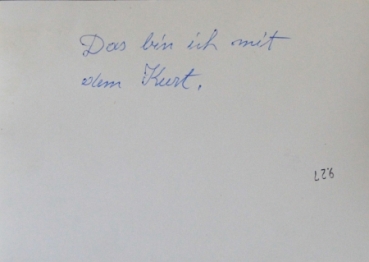 Das bin ich mit
dem Kurt.
9.27